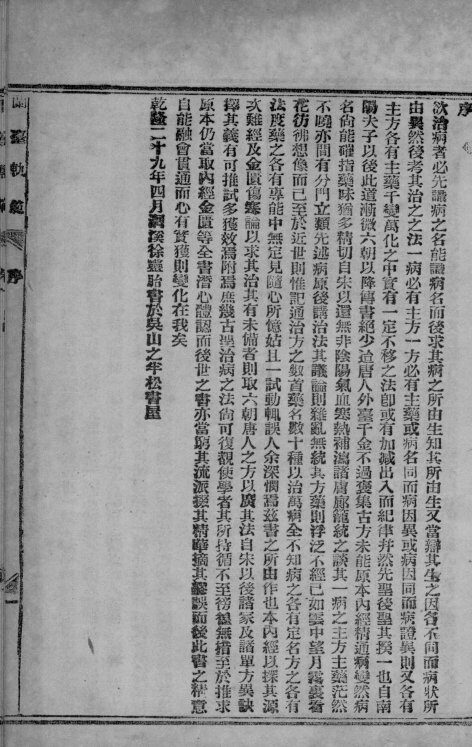 序
欲治病者必先識病之名能識病名而後求其病之所由生知其所由生又當辯其生之因各不同而病狀所
由異然後考其治之之法一病必有主方一方必有主藥或病名同而病因異或病因同而病證異則又各有
主方各有主藥千變萬化之中實有一定不移之法卽或有加減出入而紀律井然先聖後聖其揆一也自南
陽夫子以後此道漸微六朝以降傳書絕少迨唐人外臺千金不過裒集古方未能原本內經精通病變然病
名尙能確指藥味猶多精切自宋以還無非陰陽氣血寒熱補瀉諸膚廓籠統之談其一病之主方主藥茫然
不曉亦間有分門立類先述病原後講治法其議論則雜亂無統其方藥則浮泛不經已如雲中望月霧裏看
花彷彿想像而已至於近世則惟記通治方之數首藥名數十種以治萬病全不知病之各有定名方之各有
法度藥之各有專能中無定見隨心所憶姑且一試動輒誤人余深憫焉茲書之所由作也本內經以探其源
次難經及金匱傷寒論以求其治其有未備者則取六朝唐人之方以廣其法自宋以後諸家及諸單方異訣
擇其義有可推試多獲效焉附焉庶幾古聖治病之法尙可復覩使學者其所持循不至徬徨無措至於推求
原本仍當取內經金匱等全書潛心體認而後世之書亦當窮其流派掇其精華摘其謬誤而後此書之精意
自能融會貫通而心有實獲則變化在我矣
乾隆二十九年四月洄溪徐靈胎書於吳山之半松書屋
蘭臺軌範 序